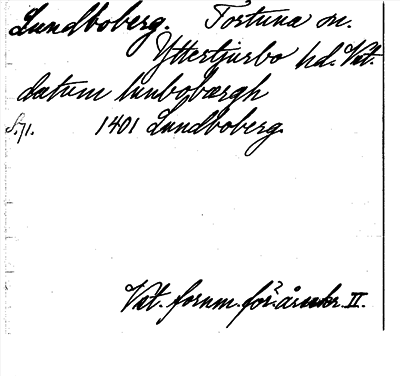 Lundboberg. Tortuna sn.
Yttertjurbo hd. Vst.
datum lunbobærgh
S.71. 1401 Lundboberg
Vst. fornm. för:s årsskr. II.